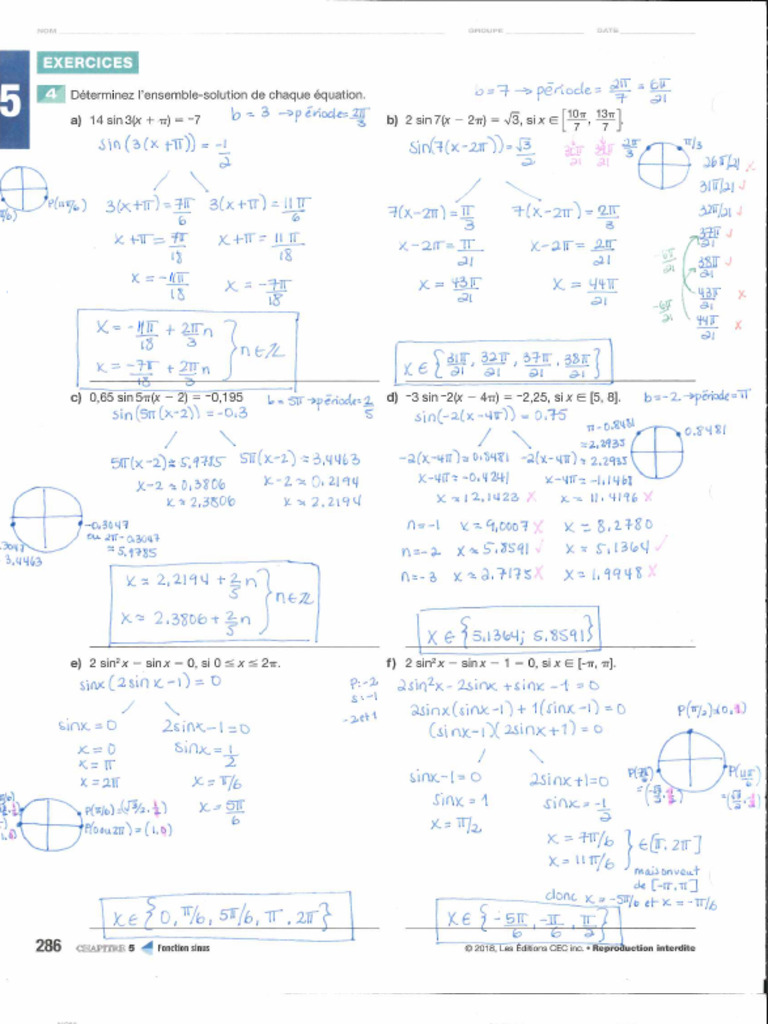 NOM
GROUPE
DATE
5
EXERCICES
4 Déterminez l'ensemble-solution de chaque équation.
a) 14 sin 3(x + π) = -7
b = 3 → période = 2π/3
sin(3(x+π)) = -1/2
P(11π/6)
3(x+π) = 7π/6   3(x+π) = 11π/6
x+π = 7π/18   x+π = 11π/18
x = -11π/18   x = -7π/18
x = -11π/18 + 2π/3 n
x = -7π/18 + 2π/3 n } n∈ℤ
b = 7 → période = 2π/7 = 6π/21
b) 2 sin 7(x − 2π) = √3, si x ∈ [10π/7, 13π/7].
30π/21   39π/21
sin(7(x-2π)) = √3/2
2π/3   π/3
7(x-2π) = π/3   7(x-2π) = 2π/3
x-2π = π/21   x-2π = 2π/21
x = 43π/21   x = 44π/21
26π/21 x
31π/21 √
32π/21 √
37π/21 √
38π/21 √
43π/21 x
44π/21 x
-6π/21
-6π/21
x ∈ {31π/21, 32π/21, 37π/21, 38π/21}
c) 0,65 sin 5π(x − 2) = -0,195
b = 5π → période = 2/5
sin(5π(x-2)) = -0.3
5π(x-2) ≈ 5,9785   5π(x-2) ≈ 3,4463
x-2 ≈ 0.3806   x-2 ≈ 0.2194
x ≈ 2,3806   x ≈ 2.2194
-0,3047
ou 2π-0.3047
= 5,9785
3,4463
x ≈ 2,2194 + 2/5 n
x ≈ 2.3806 + 2/5 n } n∈ℤ
d) -3 sin -2(x − 4π) = -2,25, si x ∈ [5, 8].
b = -2 → période = π
sin(-2(x-4π)) = 0.75
π-0.8481
= 2.2935
0.8481
-2(x-4π) ≈ 0.8481   -2(x-4π) ≈ 2.2935
x-4π ≈ -0.4241   x-4π ≈ -1.1468
x ≈ 12.1423 x   x ≈ 11.4196 x
n = -1   x ≈ 9,0007 x   x ≈ 8.2780
n = -2   x ≈ 5.8591 √   x ≈ 5.1364 √
n = -3   x ≈ 2.7175 x   x ≈ 1.9948 x
x ∈ {5.1364; 5.8591}
e) 2 sin² x − sin x = 0, si 0 ≤ x ≤ 2π.
sinx(2sinx-1) = 0
sinx = 0   2sinx-1 = 0
x = 0   sinx = 1/2
x = π
x = 2π   x = π/6
x = 5π/6
P(π/6) = (√3/2, 1/2)
P(0 ou 2π) = (1,0)
x ∈ {0, π/6, 5π/6, π, 2π}
f) 2 sin² x − sin x − 1 = 0, si x ∈ [-π, π].
P: -2
s: -1
-2 et 1
2sin²x - 2sinx + sinx - 1 = 0
2sinx(sinx-1) + 1(sinx-1) = 0
(sinx-1)(2sinx+1) = 0
P(π/2) = (0,1)
P(7π/6)
P(11π/6)
sinx-1 = 0   2sinx+1 = 0
sinx = 1   sinx = -1/2
x = π/2
x = 7π/6
x = 11π/6 } ∈ [π, 2π]
mais on veut
de [-π, π]
donc x = -5π/6 et x = -π/6
x ∈ {-5π/6, -π/6, π/2}
286 CHAPITRE 5 Fonction sinus
© 2018, Les Éditions CEC inc. • Reproduction interdite